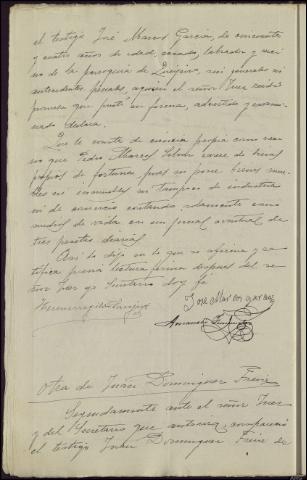 el testigo José Marcos Garcia, de cincuenta
y cuatro años de edad, casado, labrador y veci-
no de la parroquia de sin generales ni
antecedentes penales, a quien el señor Juez recibió
promesa que prestó en forma, advertido y exami-
nado declara:
Que le consta de ciencia propia como veci-
no que Pedro Marcos carece de bienes
propios de fortuna pues no posee bienes mue-
bles ni inmuebles ni tampoco de industria
ni de comercio contando solamente como
medios de vida con un jornal eventual de
tres pesetas diarias.
Asi lo dijo en lo que se afirma y ra-
tifica previa lectura firma despues del se-
ñor Juez yo Secretario doy fe
Hermenegildo
Jose Marcos garcia
Otra de Juan Dominguez Freire
Seguidamente ante el señor Juez
y del Secretario que autoriza, compareció
el testigo Juan Dominguez Freire de